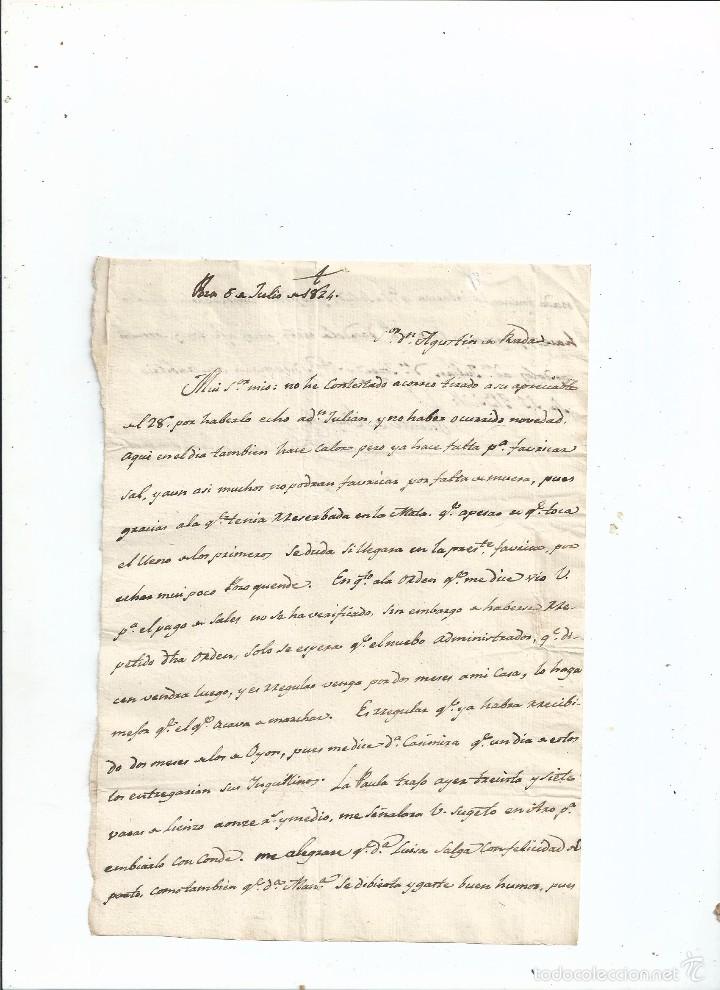 8 de Julio de 1824.
S.or D.n Agustin de Rueda
Mui S.or mio: no he Contestado acorreo tirado a su apreciable
del 28. por haberlo echo a d.n Julian, y no haber ocurrido novedad.
Aqui en el dia tambien hace Calor pero ya hace falta p.a favricar
sal, y aun asi muchos no podran favricar por falta de muera, pues
gracias ala q.e tenia rreserbada en la Mata. q.e apesar de q.e toca
el lleno de los primeros se duda si llegara en la pres.te favrica, por
echar mui poco quende. En q.to ala Orden q.e me dice vio V.
p.a el pago de Sales no se ha verificado, sin embargo a haberse rre-
petido dha Orden, solo se espera q.e el nuebo Administrador, q.e di-
cen vendra luego, y es rregular venga por dos meses a mi Casa, lo haga
mejor q.e el q.e acava de marchar. Es rregular q.e ya habra rrecibi-
do dos meses de los de Oyon, pues me dice d.a Casimira q.e un dia de estos
los entregarian sus Inquilinos. La Paula trajo ayer treinta y siete
varas de lienzo a onze r.s y medio, me señalara V. sugeto en Aro p.a
embiarlo con Conde. me alegrare q.e d.a Luisa Salga con felicidad de
parto, como tambien q.e d.n Man.l se dibierta y gaste buen humor, pues
todocoleccion
todocoleccion.net